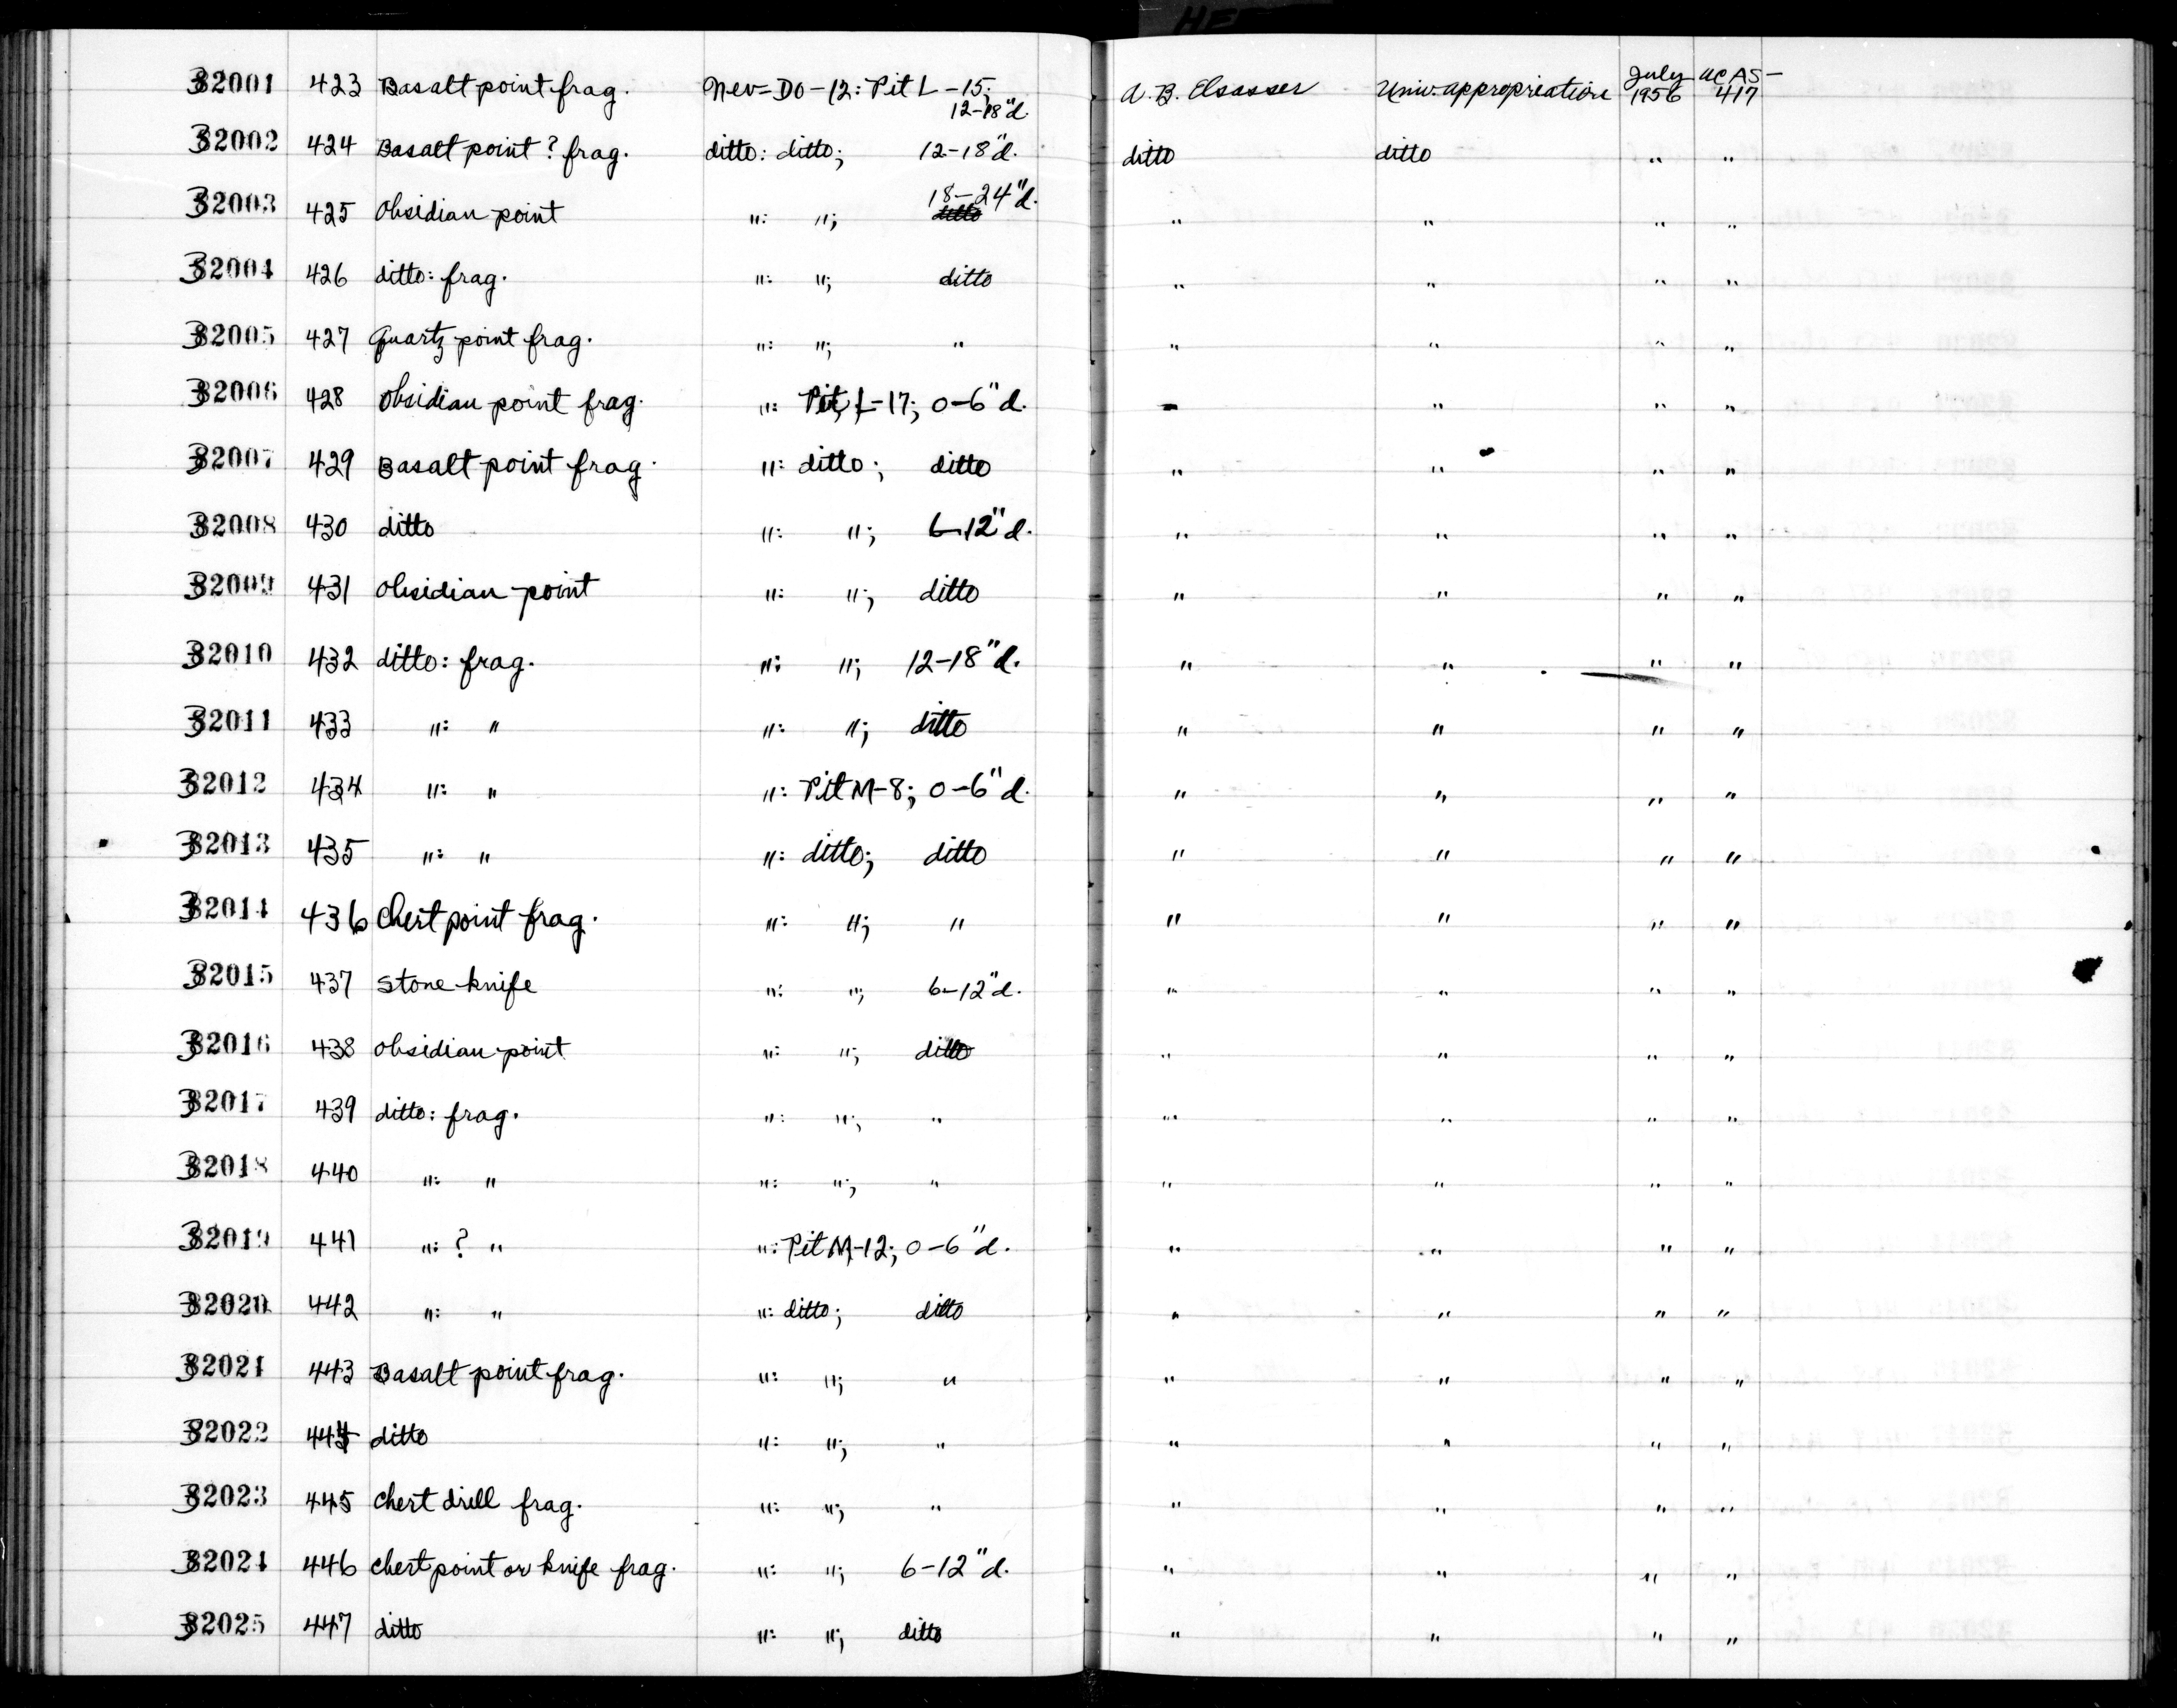 HEE
32001 423 Basalt point frag. Nev-Do-12: Pit L-15; 12-18"d. A. B. Elsasser Univ. appropriation July 1956 UCAS-417
32002 424 Basalt point? frag. ditto: ditto; 12-18"d. ditto ditto " "
32003 425 Obsidian point ": "; 18-24"d. " " " "
32004 426 ditto: frag. ": "; ditto " " " "
32005 427 Quartz point frag. ": "; " " " " "
32006 428 Obsidian point frag. ": Pit L-17; 0-6"d. " " " "
32007 429 Basalt point frag. ": ditto; ditto " " " "
32008 430 ditto ": "; 6-12"d. " " " "
32009 431 Obsidian point ": "; ditto " " " "
32010 432 ditto: frag. ": "; 12-18"d. " " " "
32011 433 ": " ": "; ditto " " " "
32012 434 ": " ": Pit M-8; 0-6"d. " " " "
32013 435 ": " ": ditto; ditto " " " "
32014 436 Chert point frag. ": "; " " " " "
32015 437 Stone knife ": "; 6-12"d. " " " "
32016 438 Obsidian point ": "; ditto " " " "
32017 439 ditto: frag. ": "; " " " " "
32018 440 ": " ": "; " " " " "
32019 441 ": ? " ": Pit M-12; 0-6"d. " " " "
32020 442 ": " ": ditto; ditto " " " "
32021 443 Basalt point frag. ": "; " " " " "
32022 444 ditto ": "; " " " " "
32023 445 Chert drill frag. ": "; " " " " "
32024 446 Chert point or knife frag. ": "; 6-12"d. " " " "
32025 447 ditto ": "; ditto " " " "